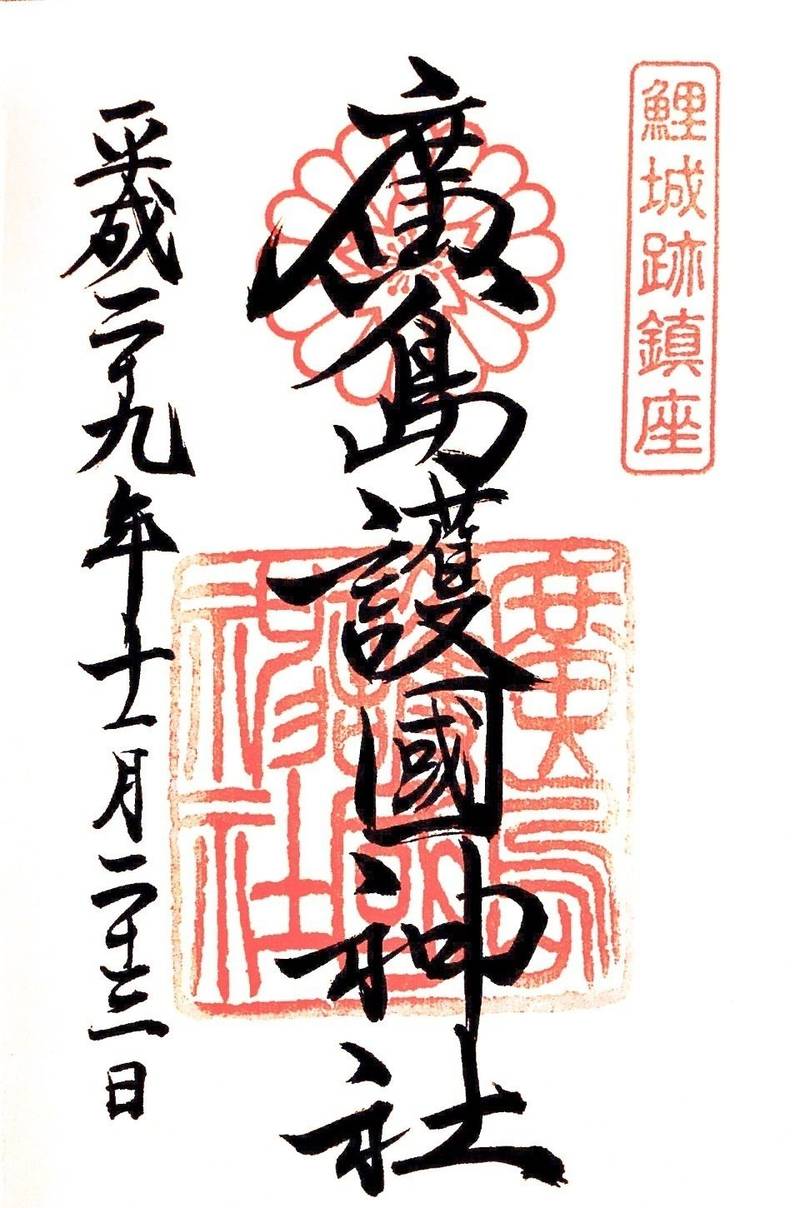 鯉城跡鎮座
廣島護國神社
廣島護國神社
平成二十九年十一月二十三日